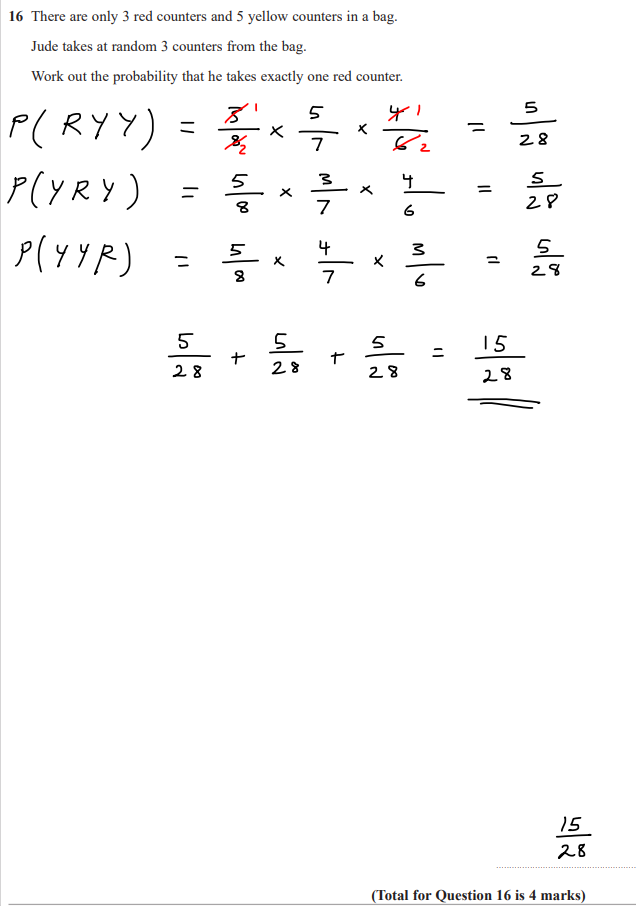 16 There are only 3 red counters and 5 yellow counters in a bag.
Jude takes at random 3 counters from the bag.
Work out the probability that he takes exactly one red counter.
P(RYY) = 3/8 1/2 × 5/7 × 4/6 1/2 = 5/28
P(YRY) = 5/8 × 3/7 × 4/6 = 5/28
P(YYR) = 5/8 × 4/7 × 3/6 = 5/28
5/28 + 5/28 + 5/28 = 15/28
15/28
(Total for Question 16 is 4 marks)